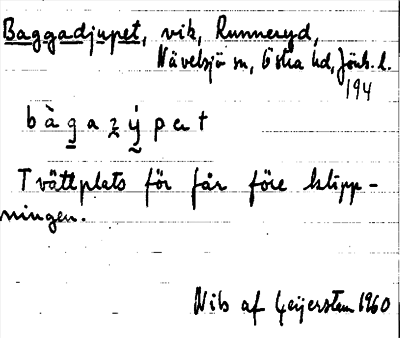 Baggadjupet, vik, Runneryd,
Nävelsjö sn, Östra hd, Jönk. l.
194
b à g a z ý p e t
Tvättplats för får före klipp-
ningen.
Nils af Geijerstam 1960